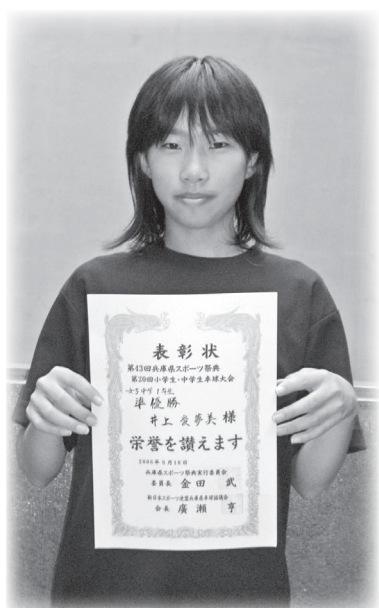 表彰状
第43回兵庫県スポーツ祭典
第20回小学生・中学生卓球大会
女子中学1年生
準優勝
井上 夢美 様
栄誉を讃えます
2006年9月18日
兵庫県スポーツ祭典実行委員会
委員長 金田 武
新日本スポーツ連盟兵庫県卓球協議会
会長 廣瀬 亨